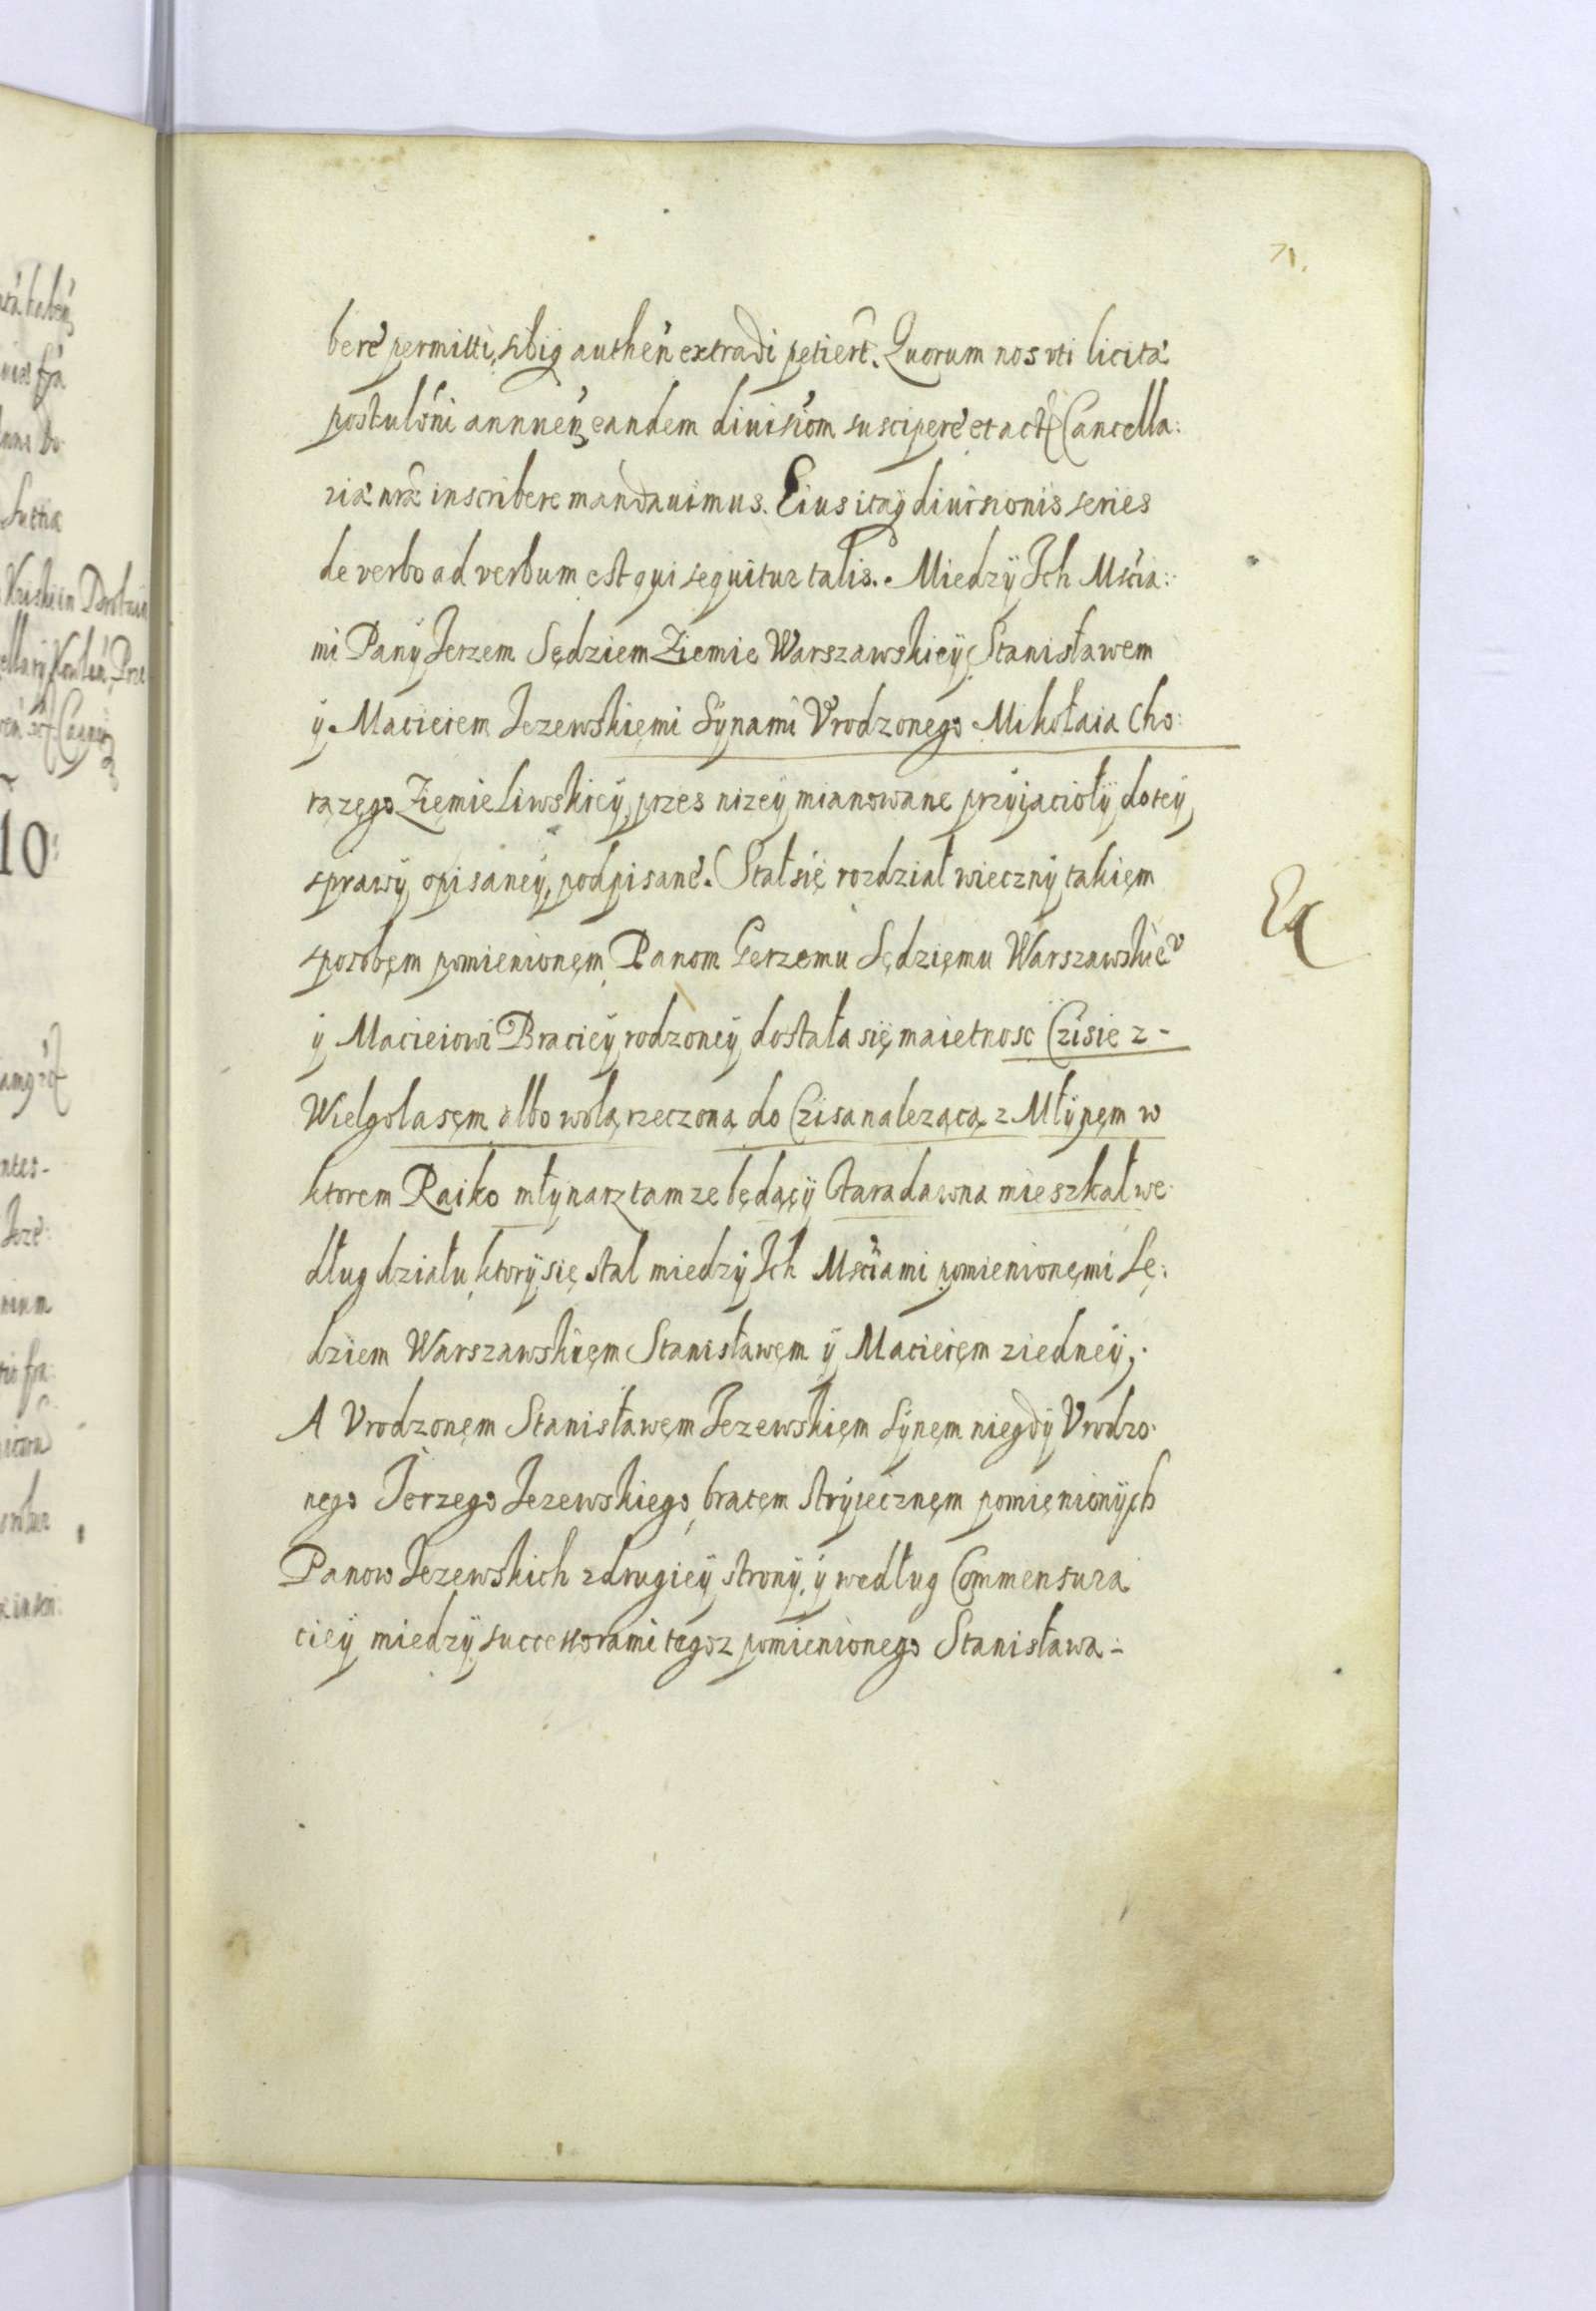 71.
bere permitti, sibiq authen extradi petiert. Quorum nos vti licita
postuloni annuen eandem diuisiom suscipere et act Cancella:
ria nra inscribere mandauimus. Eius itaq diuisionis series
de verbo ad verbum est qui sequitur talis. Miedzÿ Ich Mscia:
mi Panÿ Jerzem Sędziem Ziemie Warszawskieÿ Stanisławem
ÿ Macieiem Jezewskięmi Sÿnami Vrodzonego Mikołaia Cho:
rązęgo Ziemie Liwskieÿ, przes nizeÿ mianowane przÿiaciołÿ do teÿ
sprawÿ opisaneÿ, podpisane. Stał się rozdział wiecznÿ takięm
sposobęm pomienionęm Panom Gerzemu Sędzięmu Warszawskie
ÿ Macieiowi Bracieÿ rodzoneÿ dostała się maietnosc Czisie z -
Wielgolasęm albo wolą rzeczoną do Czisa nalezącą z Młÿnęm w
ktorem Raiko młÿnarz tamze będącÿ Stara dawna mieszkał we
dług działu ktorÿ się stal miedzÿ Ich Msciami pomienionęmi Sę:
dziem Warszawskięm Stanisławęm ÿ Macieięm z iedneÿ,
A Vrodzonęm Stanisławęm Jezewskięm Sÿnęm niegdÿ Vrodzo
nego Jerzego Jezewskiego, bratęm strÿiecznęm pomięnionÿch
Panow Jezewskich z drugieÿ stronÿ, ÿ według Commensura
cieÿ miedzÿ successorami tegoz pomienionego Stanisława -